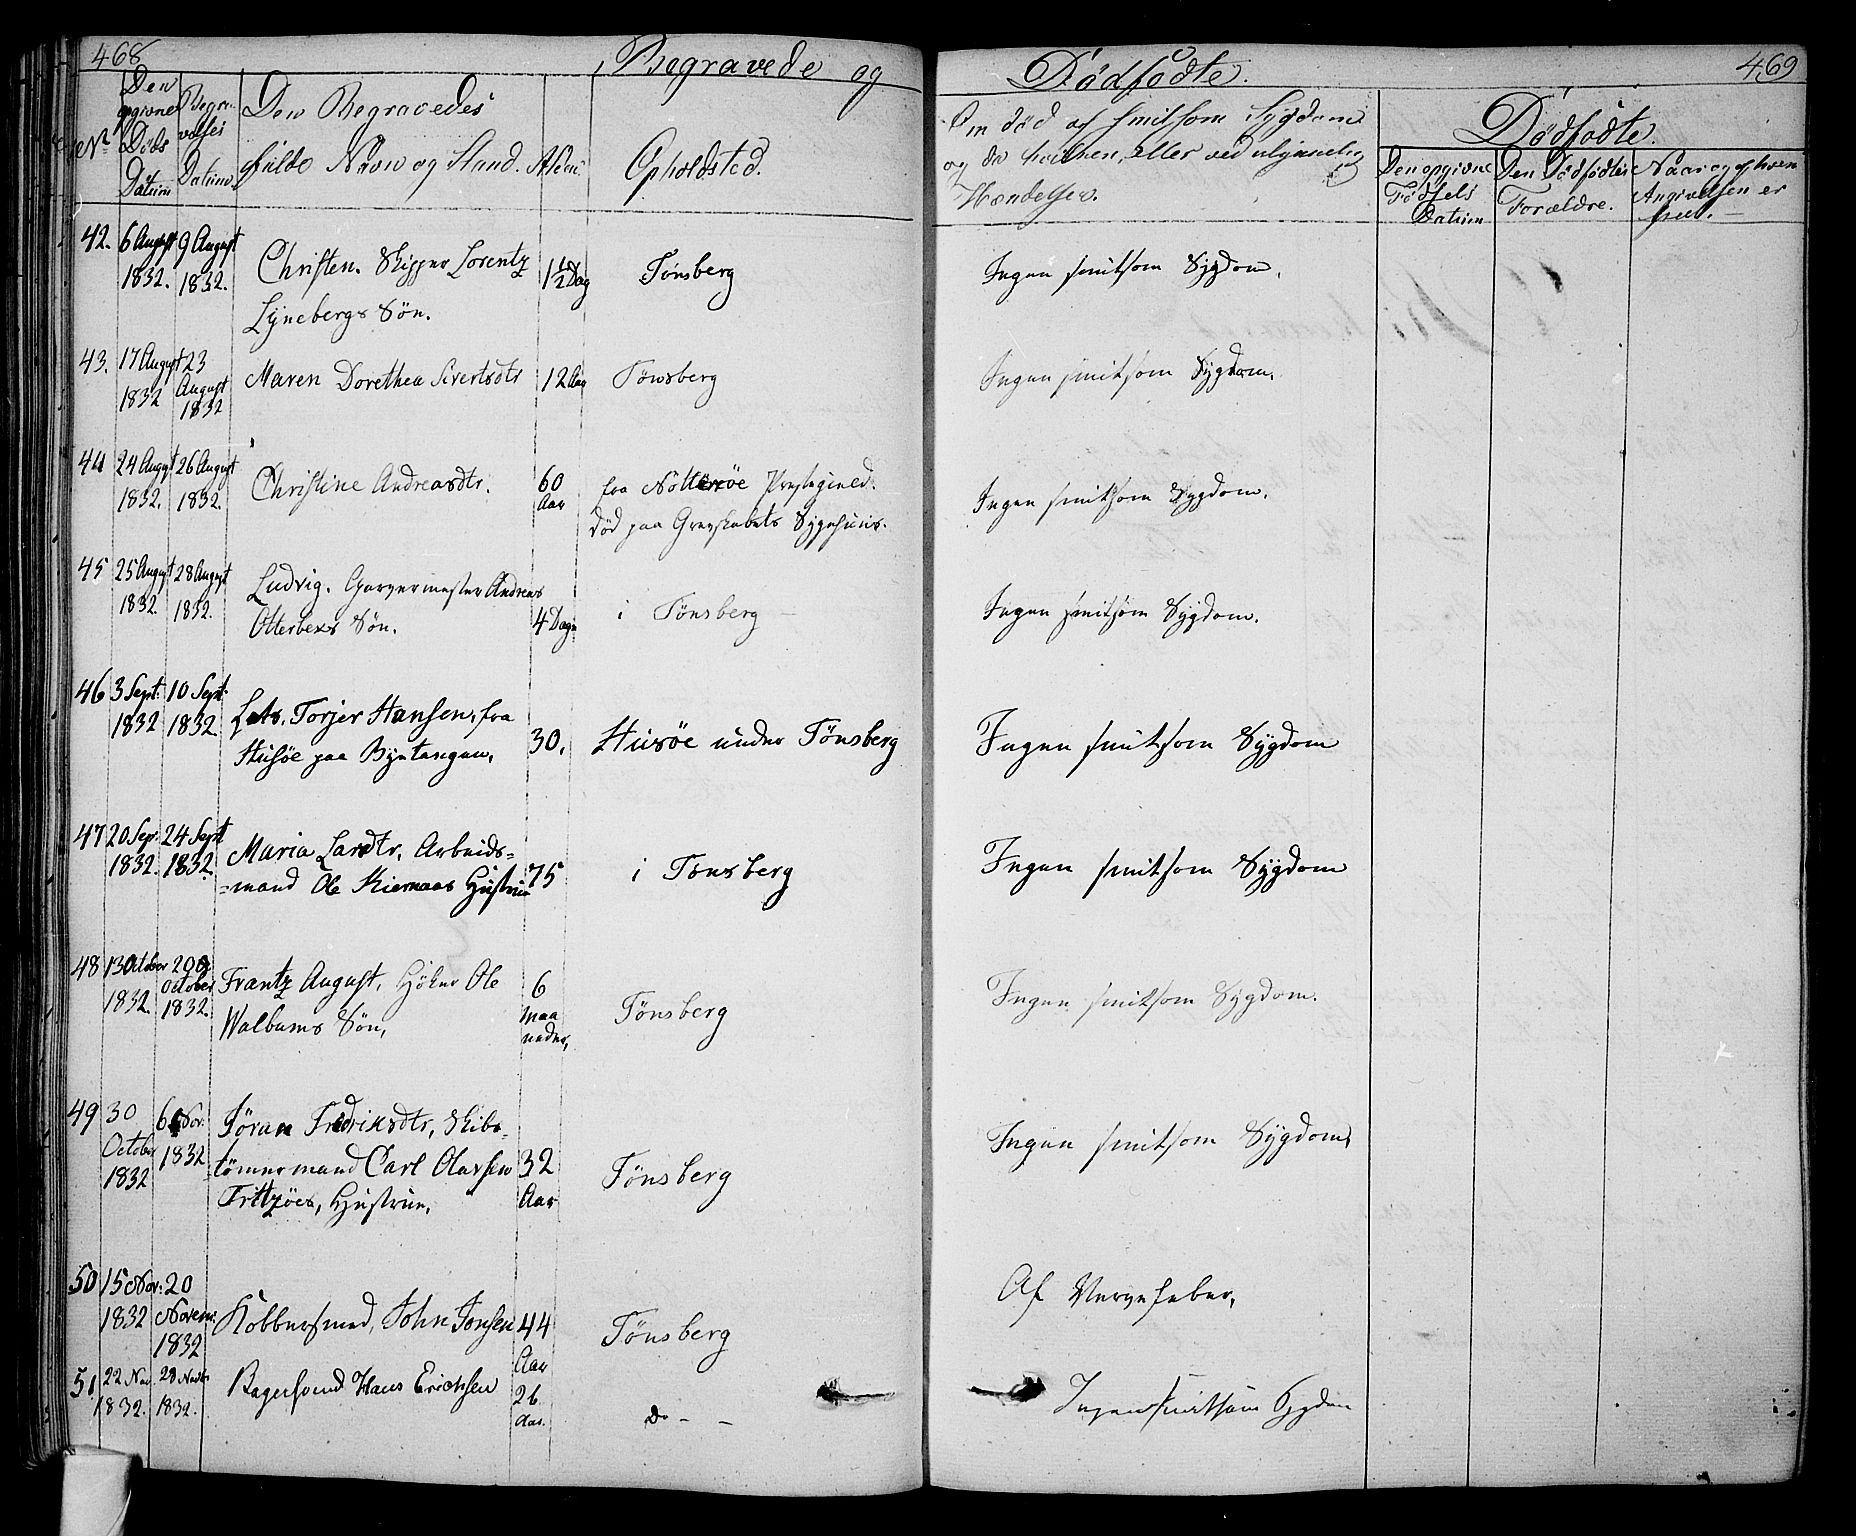 468
Begravede og
Dødfødte.
469
Nr
Den
opgivne
Døds
Datum
Begra-
velses
Datum.
Den Begravedes
fulde Navn og Stand.
Alder
Opholdsted.
Om død af smitsom Sygdom
og da hvilken, eller ved ulykkelig
Hændelse.
Dødfødte.
Den opgivne
Fødsels
Datum
Den Dødfødtes
Forældre.
Naar og af hvem
Angivelsen er
skeet.
42. 6 August 9 August
1832. 1832.
Christen. Skipper Lorentz
Lynebergs Søn.
1½ Dag
Tønsberg
Ingen smitsom Sygdom.
43. 17 August 23
1832 August
1832
Maren Dorethea Sivertsdtr
12 Aar
Tønsberg
Ingen smitsom Sygdom.
44 24 August 26 August
1832. 1832.
Christine Andreasdtr.
60
Aar
fra Nötterøe Præstegjeld.
død paa Grevskabets Sygehuus.
Ingen smitsom Sygdom.
45 25 August 28 August
1832. 1832.
Ludvig. Garvermester Andreas
Otterbecks Søn.
4 Dage
i Tønsberg
Ingen smitsom Sygdom.
46 3 Sept. 10 Sept.
1832 1832.
Lots. Torjer Hansen, fra
Husøe paa Byetangen.
30.
Husøe under Tønsberg
Ingen smitsom Sygdom
47 20 Sep. 24 Sept
1832. 1832.
Maria Larsdtr, Arbeids-
-mand Ole Kiernaas Hustrue
75
i Tønsberg
Ingen smitsom Sygdom
48 13 October 20
1832. October
1832.
Frantz August, Høker Ole
Walbums Søn,
6
Maa
neder,
Tønsberg
Ingen smitsom Sygdom.
49 30 6 Nov.
October 1832
1832
Jøran Fredriksdtr, Skibs-
tømmermand Carl Olassen
Fritzøes, Hustrue,
32
Aar
Tønsberg
Ingen smitsom Sygdom,
50 15 Nov: 20
1832 Novem:
1832
Kobbersmed, John Jonsen
44
Aar
Tønsberg
Af Nervefeber,
51 22 Nov 28 Novbr
1832. 1832.
Bagersvend Hans Erichsen
26
Aar.
Do - -
Ingen smitsom Sygdom